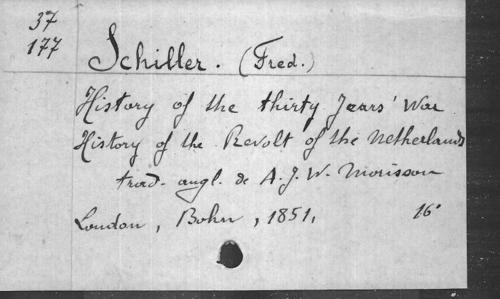 37
177
Schiller. (Fred.)
History of the thirty Years' War
History of the Revolt of the Netherlands
trad. angl. de A. J. W. Morisson
London, Bohn, 1851, 16°